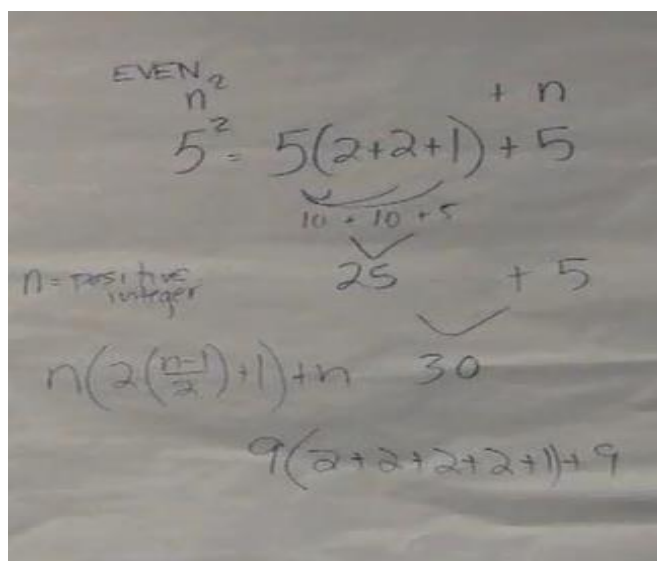 EVEN
n² + n
5² = 5(2+2+1) + 5
10 + 10 + 5
25 + 5
n = positive
integer
n(2((n-1)/2)+1)+n 30
9(2+2+2+2+1)+9